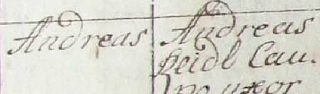 Andreas
Andreas
Heidl Cau.
po uxor